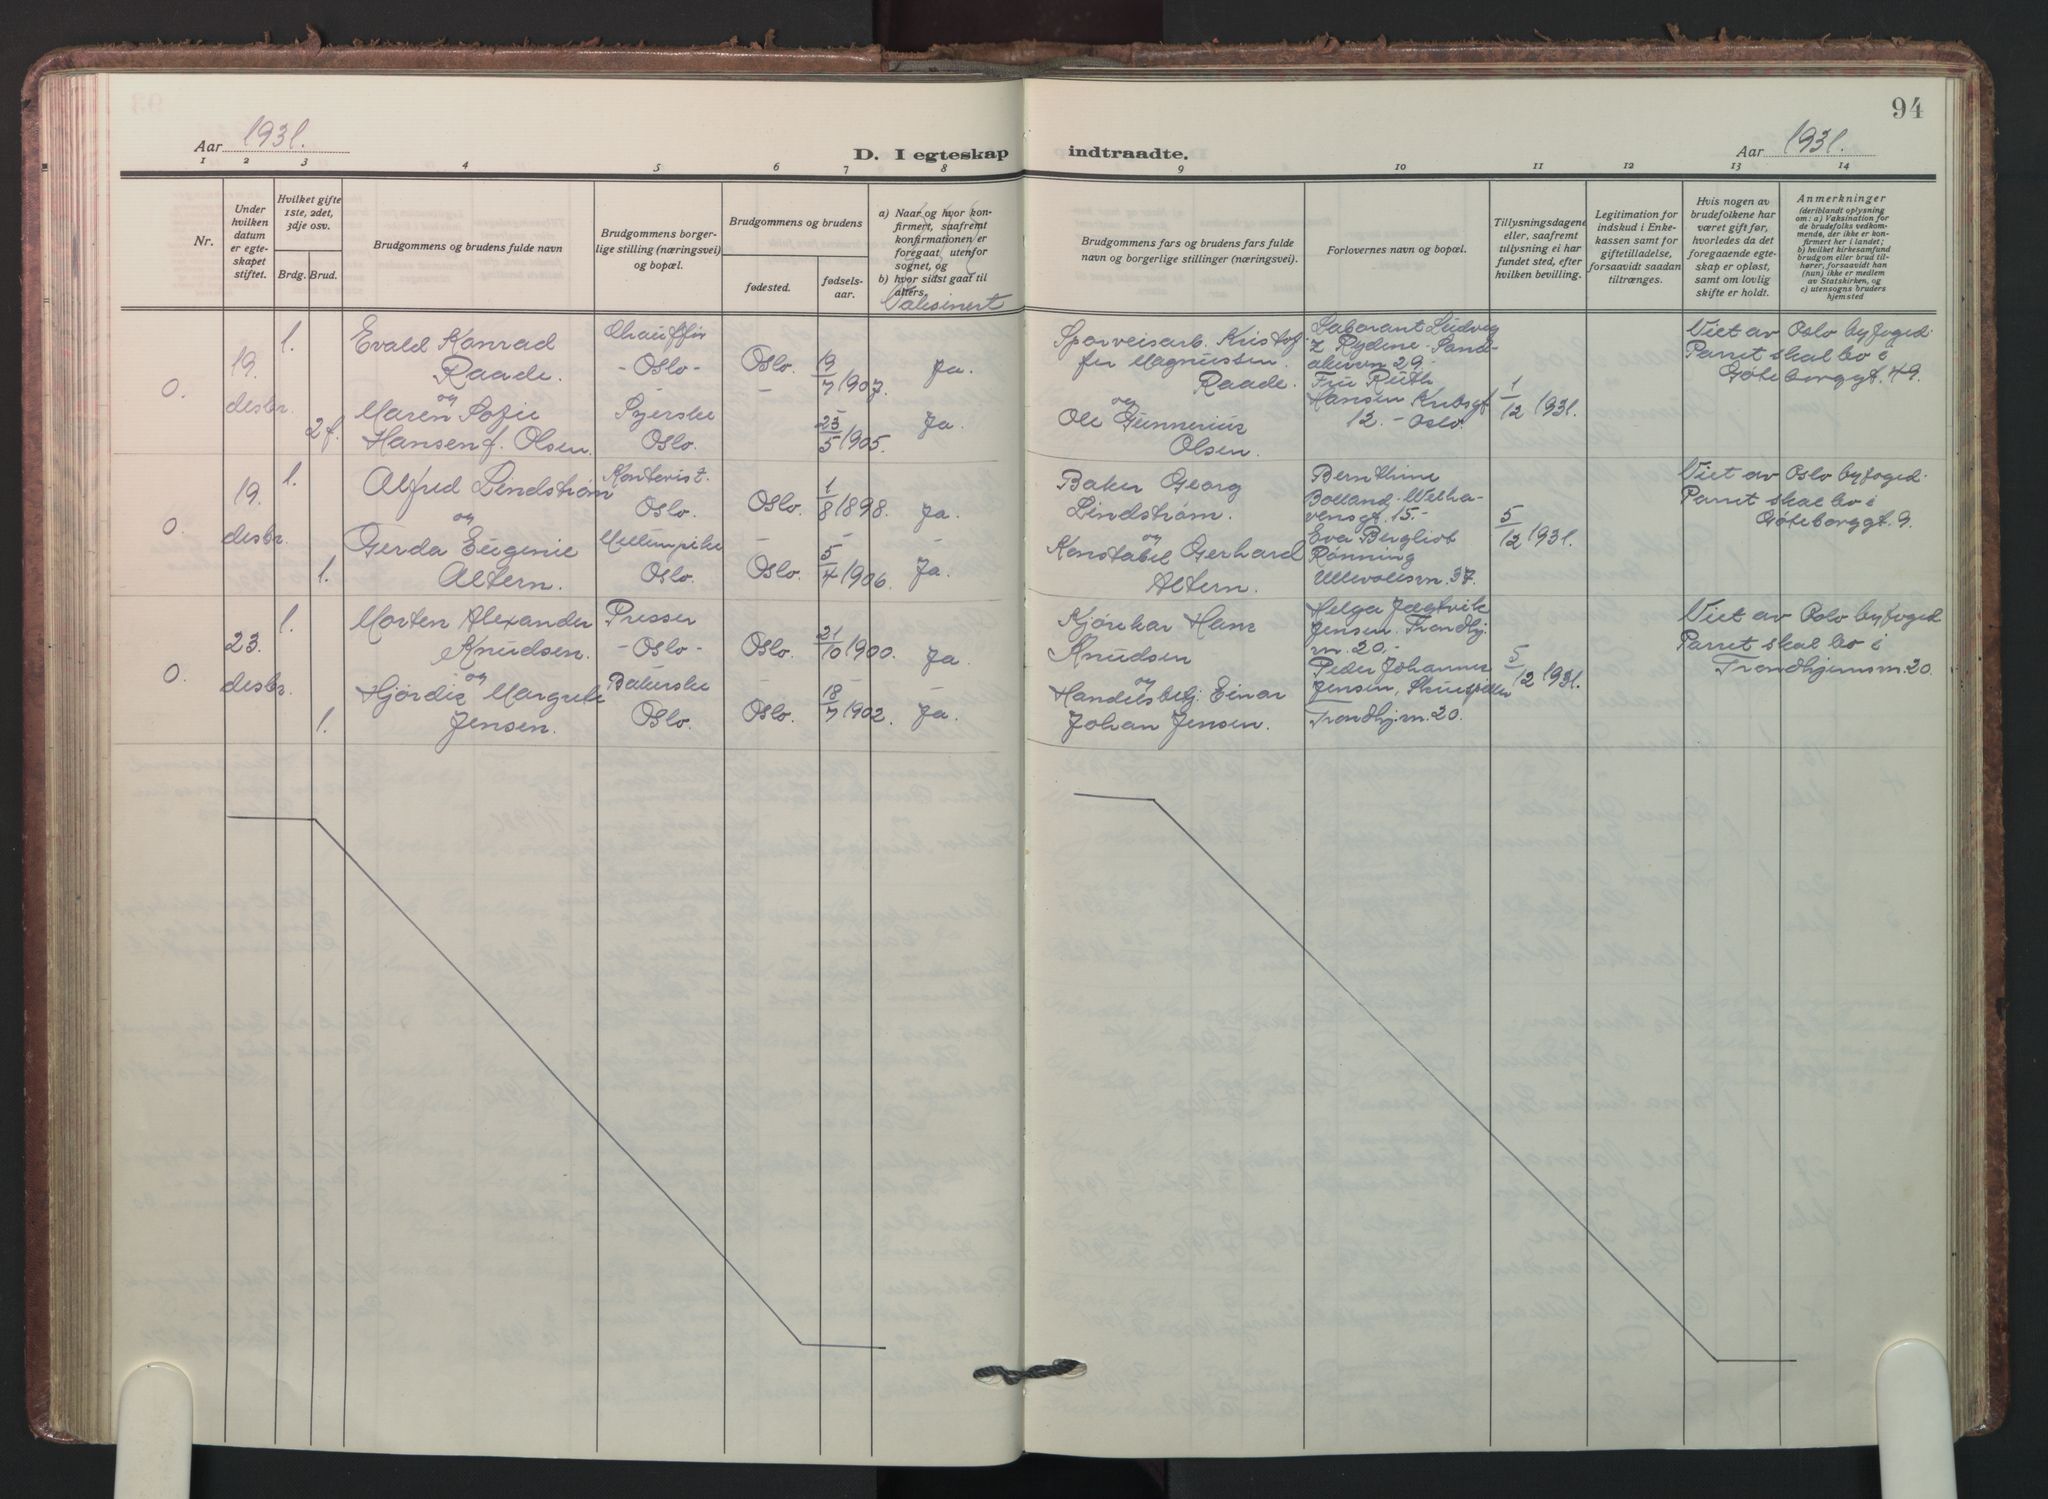 94
Aar 1931.
D. I egteskap indtraadte.
Aar 1931.
1 2 3 4 5 6 7 8 9 10 11 12 13 14
Nr.
Under hvilken datum er egteskapet stiftet.
Hvilket gifte 1ste, 2det, 3dje osv.
Brdg. Brud.
Brudgommens og brudens fulde navn
Brudgommens borgerlige stilling (næringsvei) og bopæl.
Brudgommens og brudens
fødested.
fødselsaar.
a) Naar og hvor konfirmert, saafremt konfirmationen er foregaat utenfor sognet, og
b) hvor sidst gaat til alters.
Vaksinert
Brudgommens fars og brudens fars fulde navn og borgerlige stillinger (næringsvei).
Forlovernes navn og bopæl.
Tillysningsdagene eller, saafremt tillysning ei har fundet sted, efter hvilken bevilling.
Legitimation for indskud i Enkekassen samt for giftetilladelse, forsaavidt saadan tiltrænges.
Hvis nogen av brudefolkene har været gift før, hvorledes da det foregaaende egteskap er opløst, samt om lovlig skifte er holdt.
Anmerkninger
(deriblandt oplysning om: a) Vaksination for de brudefolks vedkommende, der ikke er konfirmert her i landet; b) hvilket kirkesamfund brudgom eller brud tilhører, forsaavidt han (hun) ikke er medlem av Statskirken, og c) utensogns bruders hjemsted
0.
19. desbr.
1.
2 f.
Evald Konrad
Raade.
og
Maren Sofie
Hansen f. Olsen.
Chauffør
- Oslo -
Syerske
Oslo.
Oslo.
-
19/7 1907.
-
23/5 1905.
Ja.
-
Ja.
Sporveisarb. Kristof-
fer Magnussen
Raade.
og
Ole Gunnerius
Olsen.
Laborant Ludvig
Z Rydene - Sand-
akervn 29.
Fru Ruth
Hansen Krebsgt
12. - Oslo.
1/12 1931.
Viet av Oslo byfoged.
Parret skal bo i
Göteborggt. 49.
0.
19. desbr.
1.
1.
Alfred Lindstrøm
og
Gerda Eugenie
Altern.
Kontorist.
Oslo.
Oslo.
Oslo.
-
Oslo.
1/8 1898.
-
5/4 1906.
Ja.
-
Ja.
Baker Georg
Lindstrøm.
og
Konstabel Gerhard
Altern.
Bernthine
Bolland, Welha-
vensgt. 15. -
Eva Bergliot
Rønning
Ullevoldsvn. 37.
5/12 1931.
Viet av Oslo byfoged.
Parret skal bo i
Göteborggt. 9.
0.
23. desbr.
1.
1.
Morten Alexander
Knudsen.
og
Hjørdis Margrete
Jensen.
Presser
- Oslo -
Oslo.
Oslo.
-
Oslo.
21/10 1900.
-
18/7 1902.
Ja.
-
Ja.
Kjørekar Hans
Knudsen
og
Handelsbetj. Einar
Johan Jensen.
Helga Jægtvik
Jensen. Trondhj.
vn. 20. -
Peder Johannes
Jensen, Skuespiller
Trondhj.vn. 20.
5/12 1931.
Viet av Oslo byfoged
Parret skal bo i
Trondhjemsvn. 20.